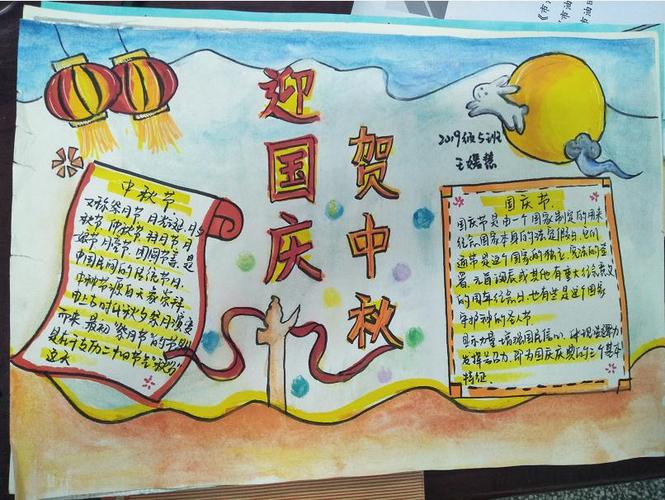 迎国庆
贺中秋
2019级5班
中秋节
又称祭月节、月光诞、月夕
秋节、仲秋节、拜月节、月
娘节、月亮节、团圆节等，是
中国民间的传统节日。
中秋节源自天象崇拜
由上古时代秋夕祭月演变
而来。最初"祭月节"的节期
是在干支历二十四节气"秋分"
这天
国庆节
国庆节是由一个国家制定的用来
纪念国家本身的法定假日。他们
通常是这个国家的独立、宪法的签
署、元首诞辰或其他有重大纪念意义
的周年纪念日，也有些是这个国家
守护神的圣人节
显示力量、增强国民信心，体现凝聚力
发挥号召力，即为国庆庆典的三个基本
特征.